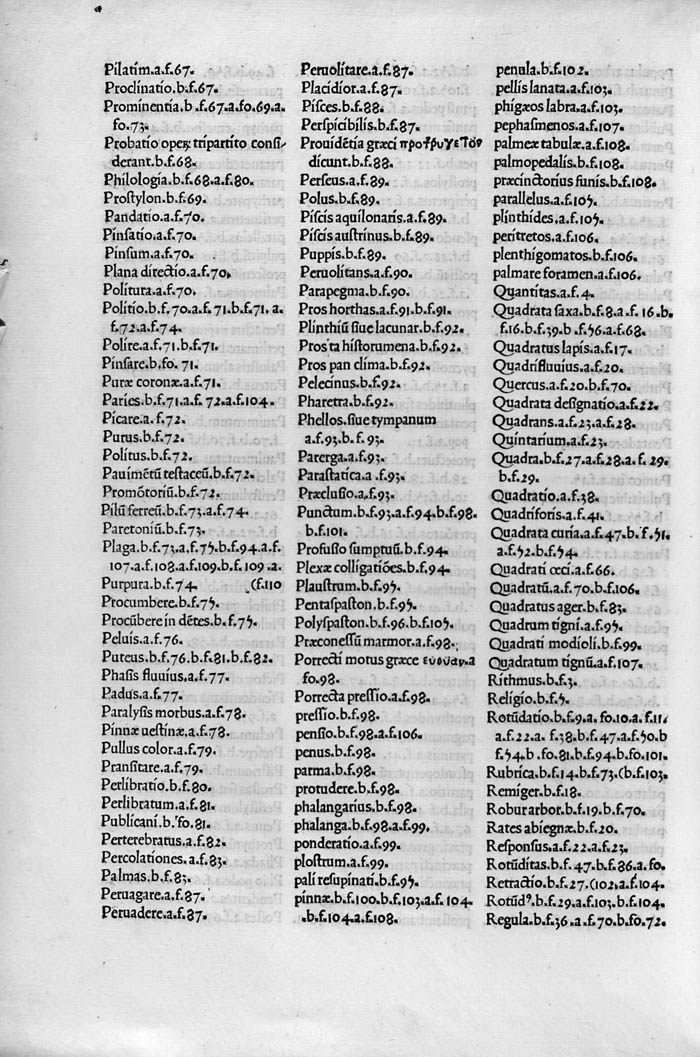 Pilatim.a.f.67.
Proclinatio.b.f.67.
Prominentia.b.f.67.a.fo.69.a.
fo.73.
Probatio opeꝝ tripartito conſi-
derant.b.f.68.
Philologia.b.f.68.a.f.80.
Proſtylon.b.f.69.
Pandatio.a.f.70.
Pinſatio.a.f.70.
Pinſum.a.f.70.
Plana directio.a.f.70.
Politura.a.f.70.
Politio.b.f.70.a.f.71.b.f.71.a.
f.72.a.f.74.
Polire.a.f.71.b.f.71.
Pinſare.b.fo.71.
Puræ coronæ.a.f.71.
Paries.b.f.71.a.f.72.a.f.104.
Picare.a.f.72.
Putus.b.f.72.
Politus.b.f.72.
Pauimētū teſtaceū.b.f.72.
Promōtoriū.b.f.72.
Pilū ferreū.b.f.73.a.f.74.
Paretoniū.b.f.73.
Plaga.b.f.73.a.f.75.b.f.94.a.f.
107.a.f.108.a.f.109.b.f.109.a.
Purpura.b.f.74. (f.110
Procumbere.b.f.75.
Procūbere in dētes.b.f.75.
Peluis.a.f.76.
Puteus.b.f.76.b.f.81.b.f.82.
Phaſis fluuius.a.f.77.
Padus.a.f.77.
Paralyſis morbus.a.f.78.
Pinnæ ueſtinæ.a.f.78.
Pullus color.a.f.79.
Pranſitare.a.f.79.
Perlibratio.b.f.80.
Perlibratum.a.f.81.
Publicani.b.fo.81.
Perterebratus.a.f.82.
Percolationes.a.f.83.
Palmas.b.f.83.
Peruagare.a.f.87.
Peruadere.a.f.87.
Peruolitare.a.f.87.
Placidior.a.f.87.
Piſces.b.f.88.
Perſpicibilis.b.f.87.
Prouidētia græci
dicunt.b.f.88.
Perſeus.a.f.89.
Polus.b.f.89.
Piſcis aquilonaris.a.f.89.
Piſcis auſtrinus.b.f.89.
Puppis.b.f.89.
Peruolitans.a.f.90.
Parapegma.b.f.90.
Pros horthas.a.f.91.b.f.91.
Plinthiū ſiue lacunar.b.f.92.
Pros ta hiſtorumena.b.f.92.
Pros pan clima.b.f.92.
Pelecinus.b.f.92.
Pharetra.b.f.92.
Phellos.ſiue tympanum
a.f.93.b.f.93.
Parerga.a.f.93.
Paraſtatica.a.f.93.
Præcluſio.a.f.93.
Punctum.b.f.93.a.f.94.b.f.98.
b.f.101.
Profuſio ſumptuū.b.f.94.
Plexæ colligatiōes.b.f.94.
Plauſtrum.b.f.95.
Pentaſpaſton.b.f.95.
Polyſpaſton.b.f.96.b.f.105.
Præconeſſū marmor.a.f.98.
Porrecti motus græce .a
fo.98.
Porrecta preſſio.a.f.98.
preſſio.b.f.98.
penſio.b.f.98.a.f.106.
penus.b.f.98.
parma.b.f.98.
protudere.b.f.98.
phalangarius.b.f.98.
phalanga.b.f.98.a.f.99.
ponderatio.a.f.99.
ploſtrum.a.f.99.
pali reſupinati.b.f.95.
pinnæ.b.f.100.b.f.103.a.f.104.
.b.f.104.a.f.108.
penula.b.f.102.
pellis lanata.a.f.103.
phigæos labra.a.f.103.
pephaſmenos.a.f.107.
palmeæ tabulæ.a.f.108.
palmopedalis.b.f.108.
præcinctorius funis.b.f.108.
parallelus.a.f.105.
plinthides.a.f.105.
peritretos.a.f.106.
plenthigomatos.b.f.106.
palmare foramen.a.f.106.
Quantitas.a.f.4.
Quadrata ſaxa.b.f.8.a.f.16.b.
f.16.b.f.39.b.f.56.a.f.68.
Quadratus lapis.a.f.17.
Quadrifluuius.a.f.20.
Quercus.a.f.20.b.f.70.
Quadrata deſignatio.a.f.22.
Quadrans.a.f.23.a.f.28.
Quintarium.a.f.23.
Quadra.b.f.27.a.f.28.a.f.29.
b.f.29.
Quadratio.a.f.38.
Quadriforis.a.f.41.
Quadrata curia.a.f.47.b.f.51.
a.f.52.b.f.54.
Quadrati œci.a.f.66.
Quadratū.a.f.70.b.f.106.
Quadratus ager.b.f.83.
Quadrum tigni.a.f.95.
Quadrati modioli.b.f.99.
Quadratum tignū.a.f.107.
Rithmus.b.f.3.
Religio.b.f.5.
Rotūdatio.b.f.9.a.fo.10.a.f.11.
a.f.22.a.f.38.b.f.47.a.f.50.b
f.54.b.fo.81.b.f.94.b.fo.101.
Rubrica.b.f.14.b.f.73.(b.f.103.
Remiger.b.f.18.
Robur arbor.b.f.19.b.f.70.
Rates abiegnæ.b.f.20.
Reſponſus.a.f.22.a.f.23.
Rotūditas.b.f.47.b.f.86.a.fo.
Retractio.b.f.27.(102.a.f.104.
Rotūdꝰ.b.f.29.a.f.103.b.f.104.
Regula.b.f.36.a.f.70.b.fo.72.